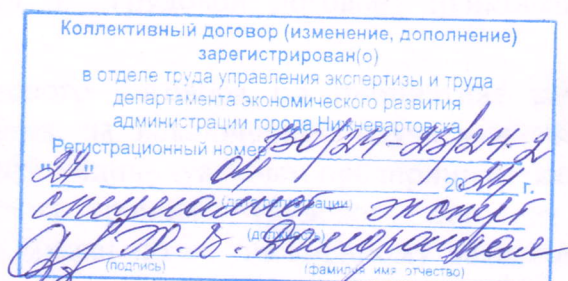 Коллективный договор (изменение, дополнение)
зарегистрирован(о)
в отделе труда управления экспертизы и труда
департамента экономического развития
администрации города Нижневартовска
Регистрационный номер 130/24-23/24-2
"27" 04 2024 г.
(дата регистрации)
специалист - эксперт
(должность)
Ю.В. Доморацкая
(подпись) (фамилия имя отчество)